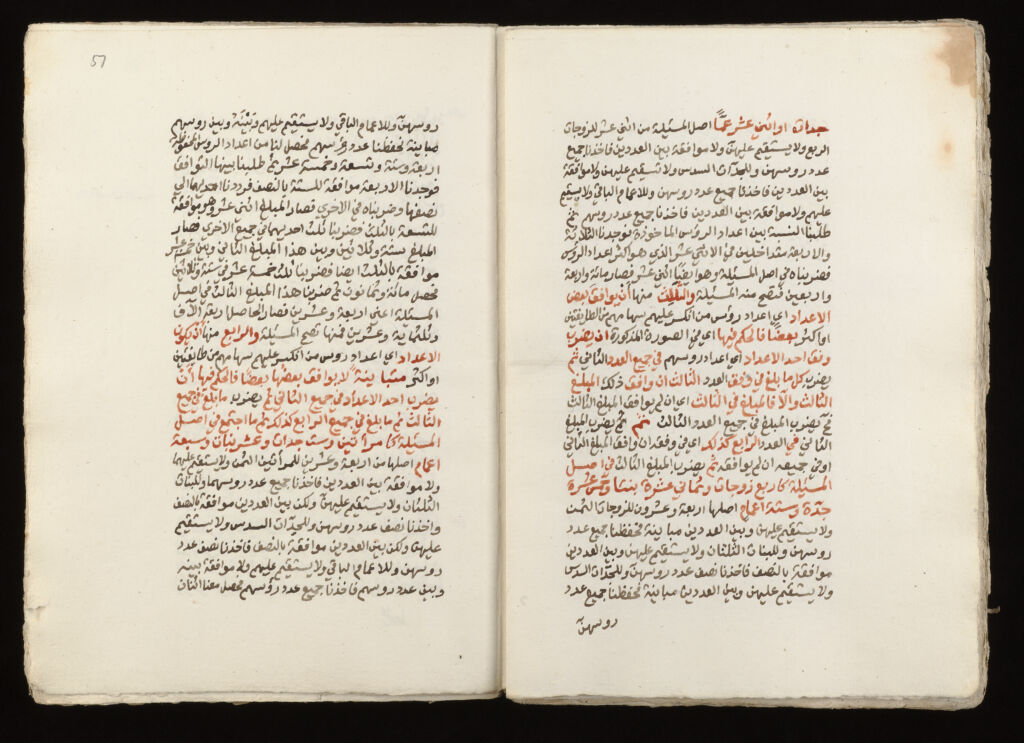 جدات او اثني عشر عمًا اصل المسئلة من اثني عشر للزوجات
الربع ولا يستقيم عليهن ولا موافقة بين العددين فاخذنا جميع
عدد روسهن وللجدات السدس ولا يستقيم عليهن ولا موافقة
بين العددين فاخذنا جميع عدد روسهن وللاعمام الباقي ولا يستقيم
عليهم ولا موافقة بين العددين فاخذنا جميع عدد روسهم ثم
طلبنا النسبة بين اعداد الروس الماخوذة فوجدنا الثلاثة
والاربعة متداخلين في الاثني عشر الذي هو اكثر اعداد الروس
فضربناه في اصل المسئلة وهو ايضًا اثني عشر فصار مائة واربعة
واربعين فتصح منه المسئلة والثالث منها ان يوافق بعض
الاعداد اي اعداد روس من انكسر عليهم سهامهم من طائفتين
او اكثر بعضًا فالحكم فيها اي في الصورة المذكورة ان يضرب
وفق احد الاعداد اي اعداد روسهم في جميع العدد الثاني ثم
يضرب كل ما بلغ في وفق العدد الثالث ان وافق ذلك المبلغ
الثالث والا فالمبلغ في الثالث اي ان لم يوافق المبلغ الثالث
فح يضرب المبلغ في جميع العدد الثالث ثم يضرب المبلغ
الثاني في العدد الرابع كذلك اي في وفقه ان وافق المبلغ الثاني
او في جميعه ان لم يوافقه ثم يضرب المبلغ الثالث في اصل
المسئلة كاربع زوجات وثماني عشرة بنتا وخمس عشرة
جدة وستة اعمام اصلها اربعة وعشرون للزوجات الثمن
ولا يستقيم عليهن وبين العددين مباينة فحفظنا جميع عدد
روسهن وللبنات الثلثان ولا يستقيم عليهن وبين العددين
موافقة بالنصف فاخذنا نصف عدد روسهن وللجدات السدس
ولا يستقيم عليهن وبين العددين مباينة فحفظنا جميع عدد
روسهن
57
روسهن وللاعمام الباقي ولا يستقيم عليهم وبينه وبين روسهم
مباينة فحفظنا عدد روسهم فحصل لنا من اعداد الروس المحفوظة
اربعة وستة وتسعة وخمسة عشر ثم طلبنا بينها التوافق
فوجدنا الاربعة موافقة للستة بالنصف فرددنا احديهما الي
نصفها وضربناه في الاخري فصار المبلغ اثني عشر وهو موافقة
للتسعة بالثلث فضربنا ثلث احديهما في جميع الاخري فصار
المبلغ ستة وثلاثين وبين هذا المبلغ الثاني وبين خمسة عشر
موافقة بالثلث ايضا فضربنا ثلث خمسة عشر في ستة وثلاثين
فحصل مائة وثمانون ثم ضربنا هذا المبلغ الثالث في اصل
المسئلة اعني اربعة وعشرين فصار الحاصل اربعة آلاف
وثلثماية وعشرين فمنها تصح المسئلة والرابع منها ان يكون
الاعداد اي اعداد روس من انكسر عليهم سهامهم من طائفتين
او اكثر متباينة لا يوافق بعضها بعضًا فالحكم فيها ان
يضرب احد الاعداد في جميع الثاني ثم يضرب ما بلغ في جميع
الثالث ثم ما بلغ في جميع الرابع كذلك ثم ما اجتمع في اصل
المسئلة كامرأتين وست جدات وعشر بنات وسبعة
اعمام اصلها من اربعة وعشرين للمرأتين الثمن ولا يستقيم عليهما
ولا موافقة بين العددين فاخذنا جميع عدد روسهما وللبنات
الثلثان ولا يستقيم عليهن ولكن بين العددين موافقة بالنصف
واخذنا نصف عدد روسهن وللجدات السدس ولا يستقيم
عليهن ولكن بين العددين موافقة بالنصف فاخذنا نصف عدد
روسهن وللاعمام الباقي ولا يستقيم عليهم ولا موافقة بينه
وبين عدد روسهم فاخذنا جميع عدد روسهم فحصل معنا اثنان